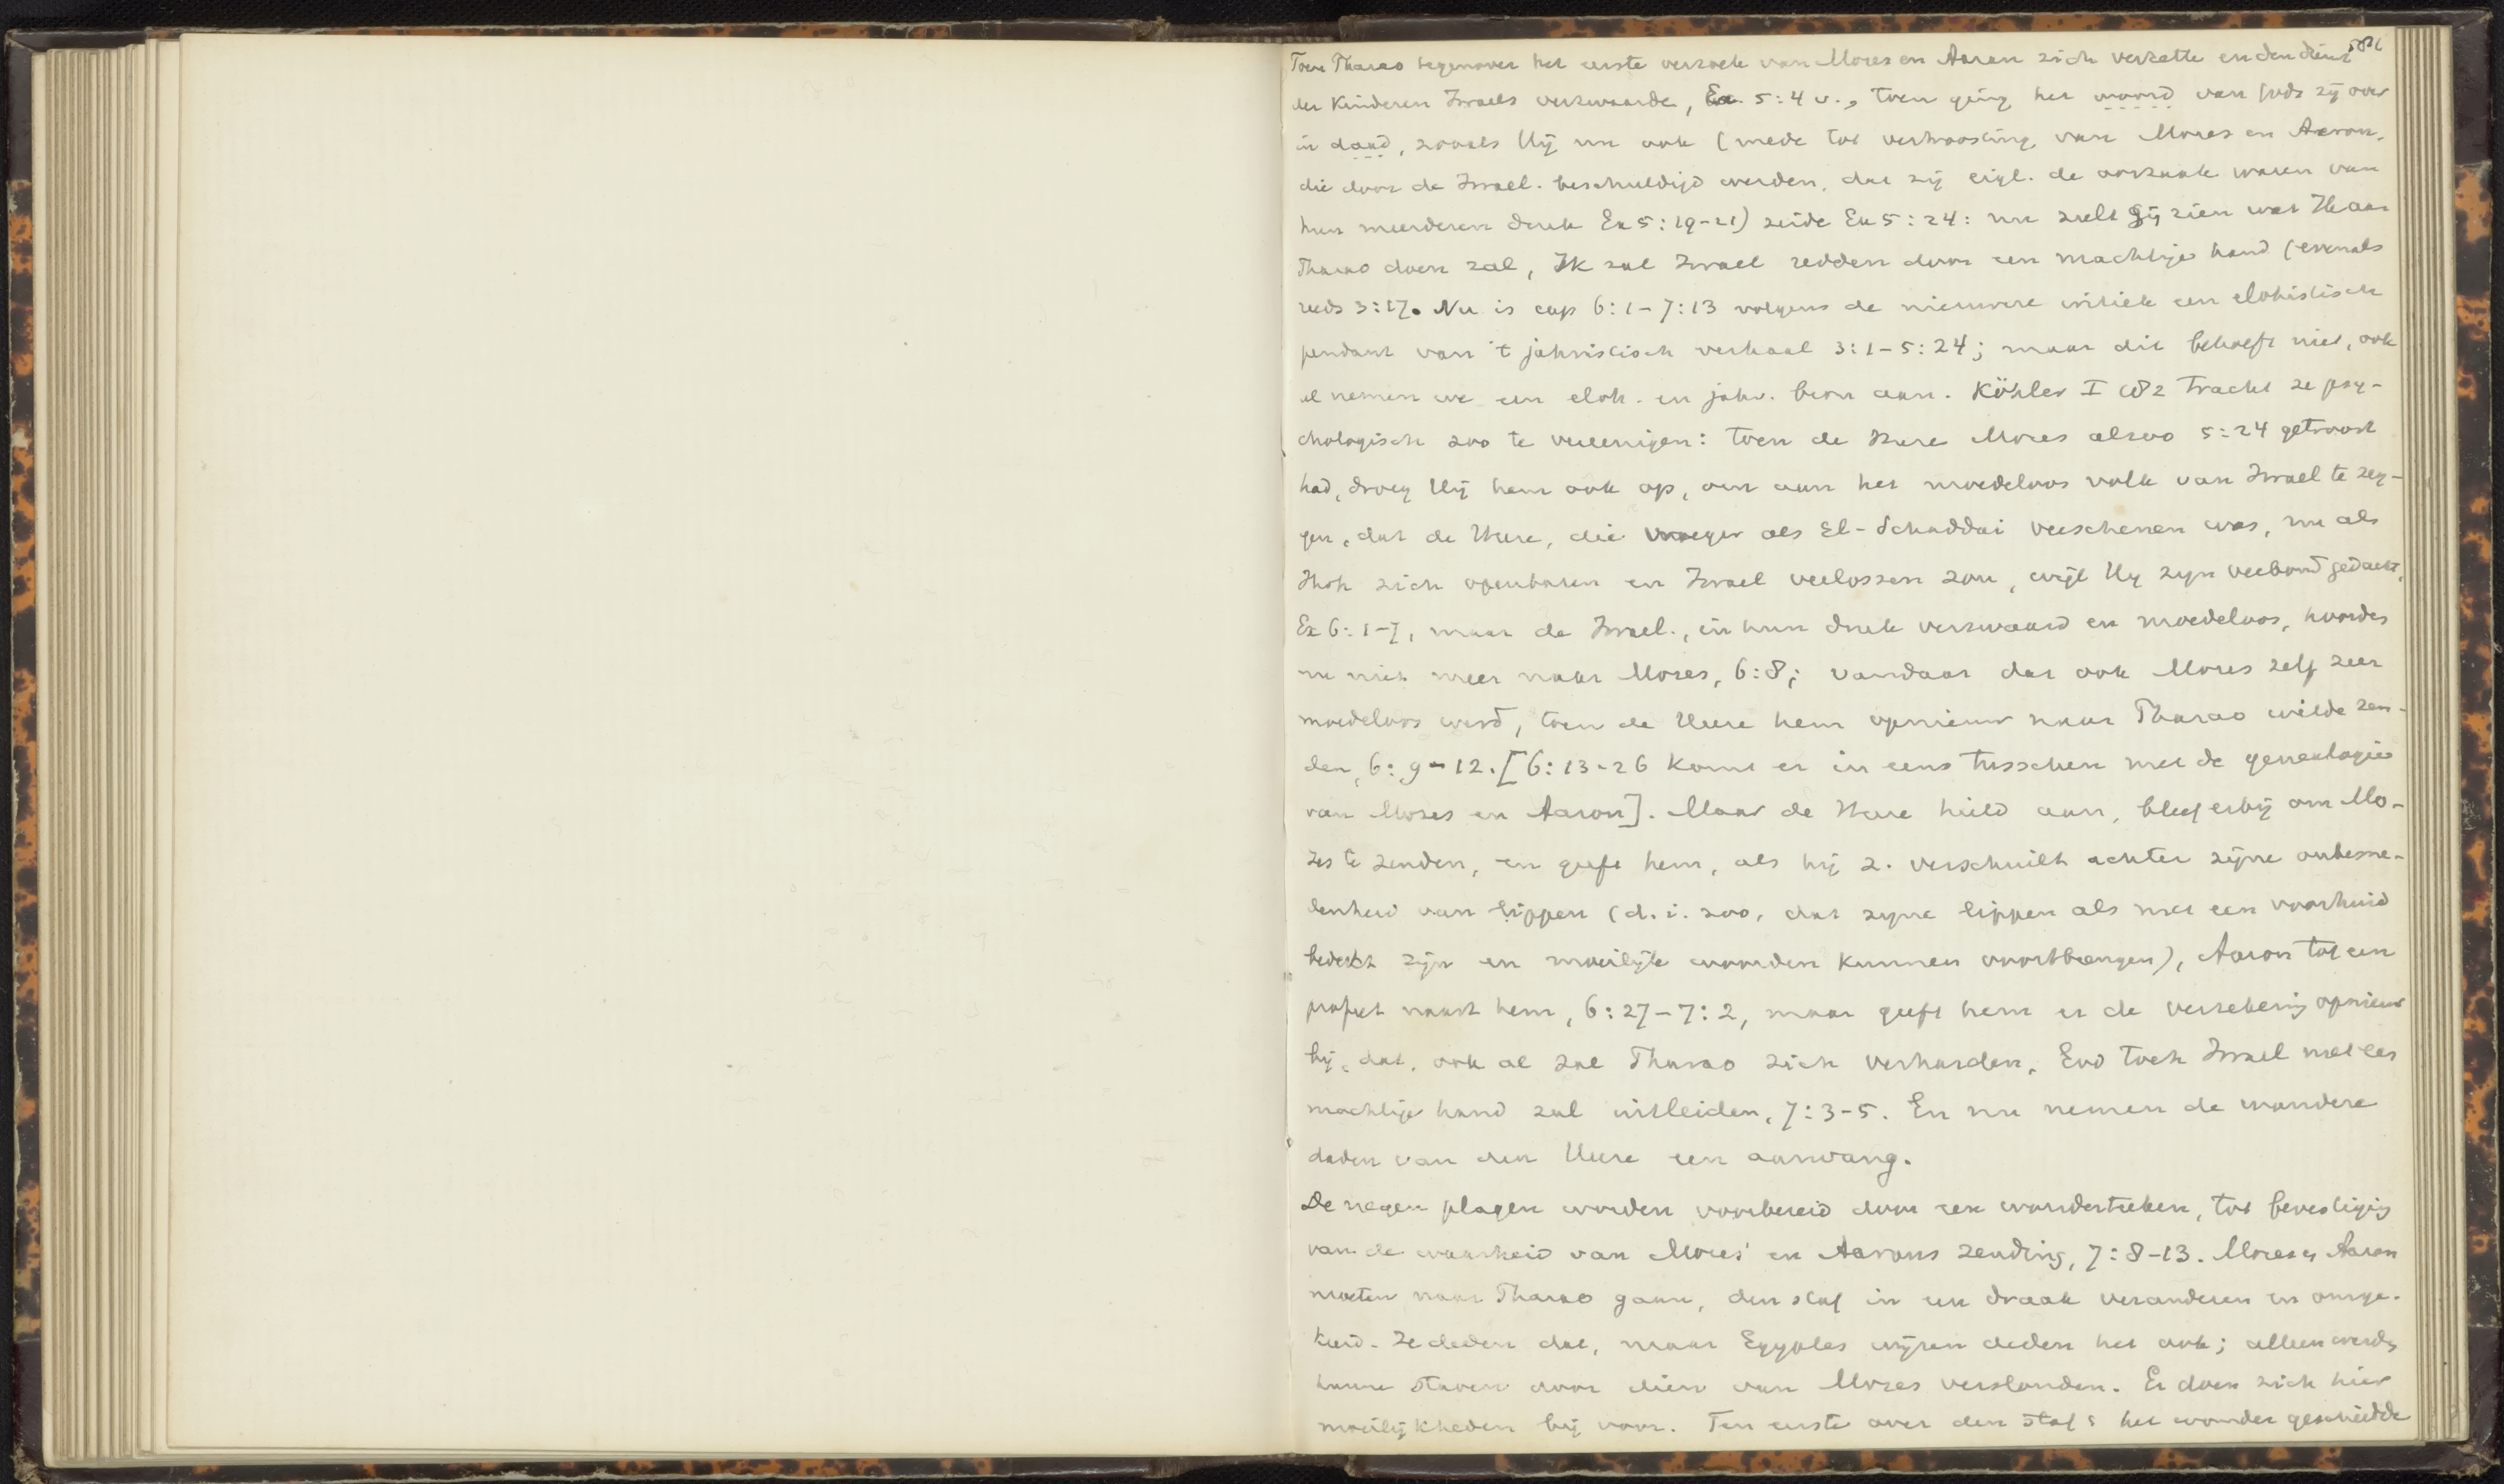 Toen Pharao tegenover het eerste verzoek van Mozes en Aaron zich verzette en den dienst
der Kinderen Israels verzwaarde, Ex. 5:4 v., toen ging het woord van Gods zij over
in daad, zooals Hij nu ook (mede tot vertroosting van Mozes en Aaron,
die door de Israel. beschuldigd werden, dat zij eigl. de oorzaak waren van
hun meerderen druk Ex 5:19-21) zeide Ex 5:24: nu zult gij zien wat Ik aan
Pharao doen zal, Ik zal Israel redden door een machtige hand (evenals
reeds 3:17. Nu is cap 6:1-7:13 volgens de nieuwere critiek een elohistisch
pendant van 't jahvistisch verhaal 3:1-5:24; maar dit behoeft niet, ook
al nemen we een eloh. en jahv. bron aan. Köhler I tracht ze psy-
chologisch zoo te vereenigen: toen de Heere Mozes alzoo 5:24 getroost
had, droeg Hij hem ook op, om aan het moedeloos volk van Israel te zeg-
gen, dat de Heere, die vroeger als El-Schaddai verschenen was, nu als
Jhvh zich openbaren en Israel verlossen zou, wijl Hij zijn verbond gedacht,
Ex 6:1-7, maar de Israel., in hun druk verzwaard en moedeloos, hoorden
nu niet meer naar Mozes, 6:8; vandaar dat ook Mozes zelf zeer
moedeloos werd, toen de Heere hem opnieuw naar Pharao wilde zen-
den, 6:9-12. [6:13-26 komt er in eens tusschen met de genealogie
van Mozes en Aaron]. Maar de Heere hield aan, bleef erbij om Mo-
zes te zenden, en geeft hem, als hij z. verschuilt achter zijne onbesne-
denheid van lippen (d.i. zoo, dat zijne lippen als met een voorhuid
bedekt zijn en moeilijk woorden kunnen voortbrengen), Aaron tot een
profeet naast hem, 6:27-7:2, maar geeft hem er de verzekering opnieuw
bij, dat, ook al zal Pharao zich verharden, God toch Israel met een
machtige hand zal uitleiden, 7:3-5. En nu nemen de wondere
daden van den Heere een aanvang.
De negen plagen worden voorbereid door een wonderteeken, tot bevestiging
van de waarheid van Mozes' en Aarons zending, 7:8-13. Mozes en Aaron
moeten naar Pharao gaan, den staf in een draak veranderen en omge-
keerd. Ze deden dat, maar Egyptes wijzen deden het ook; alleen werden
hunne staven door dien van Mozes verslonden. Er doen zich hier
moeilijkheden bij voor. Ten eerste over den staf: het wonder geschiedde